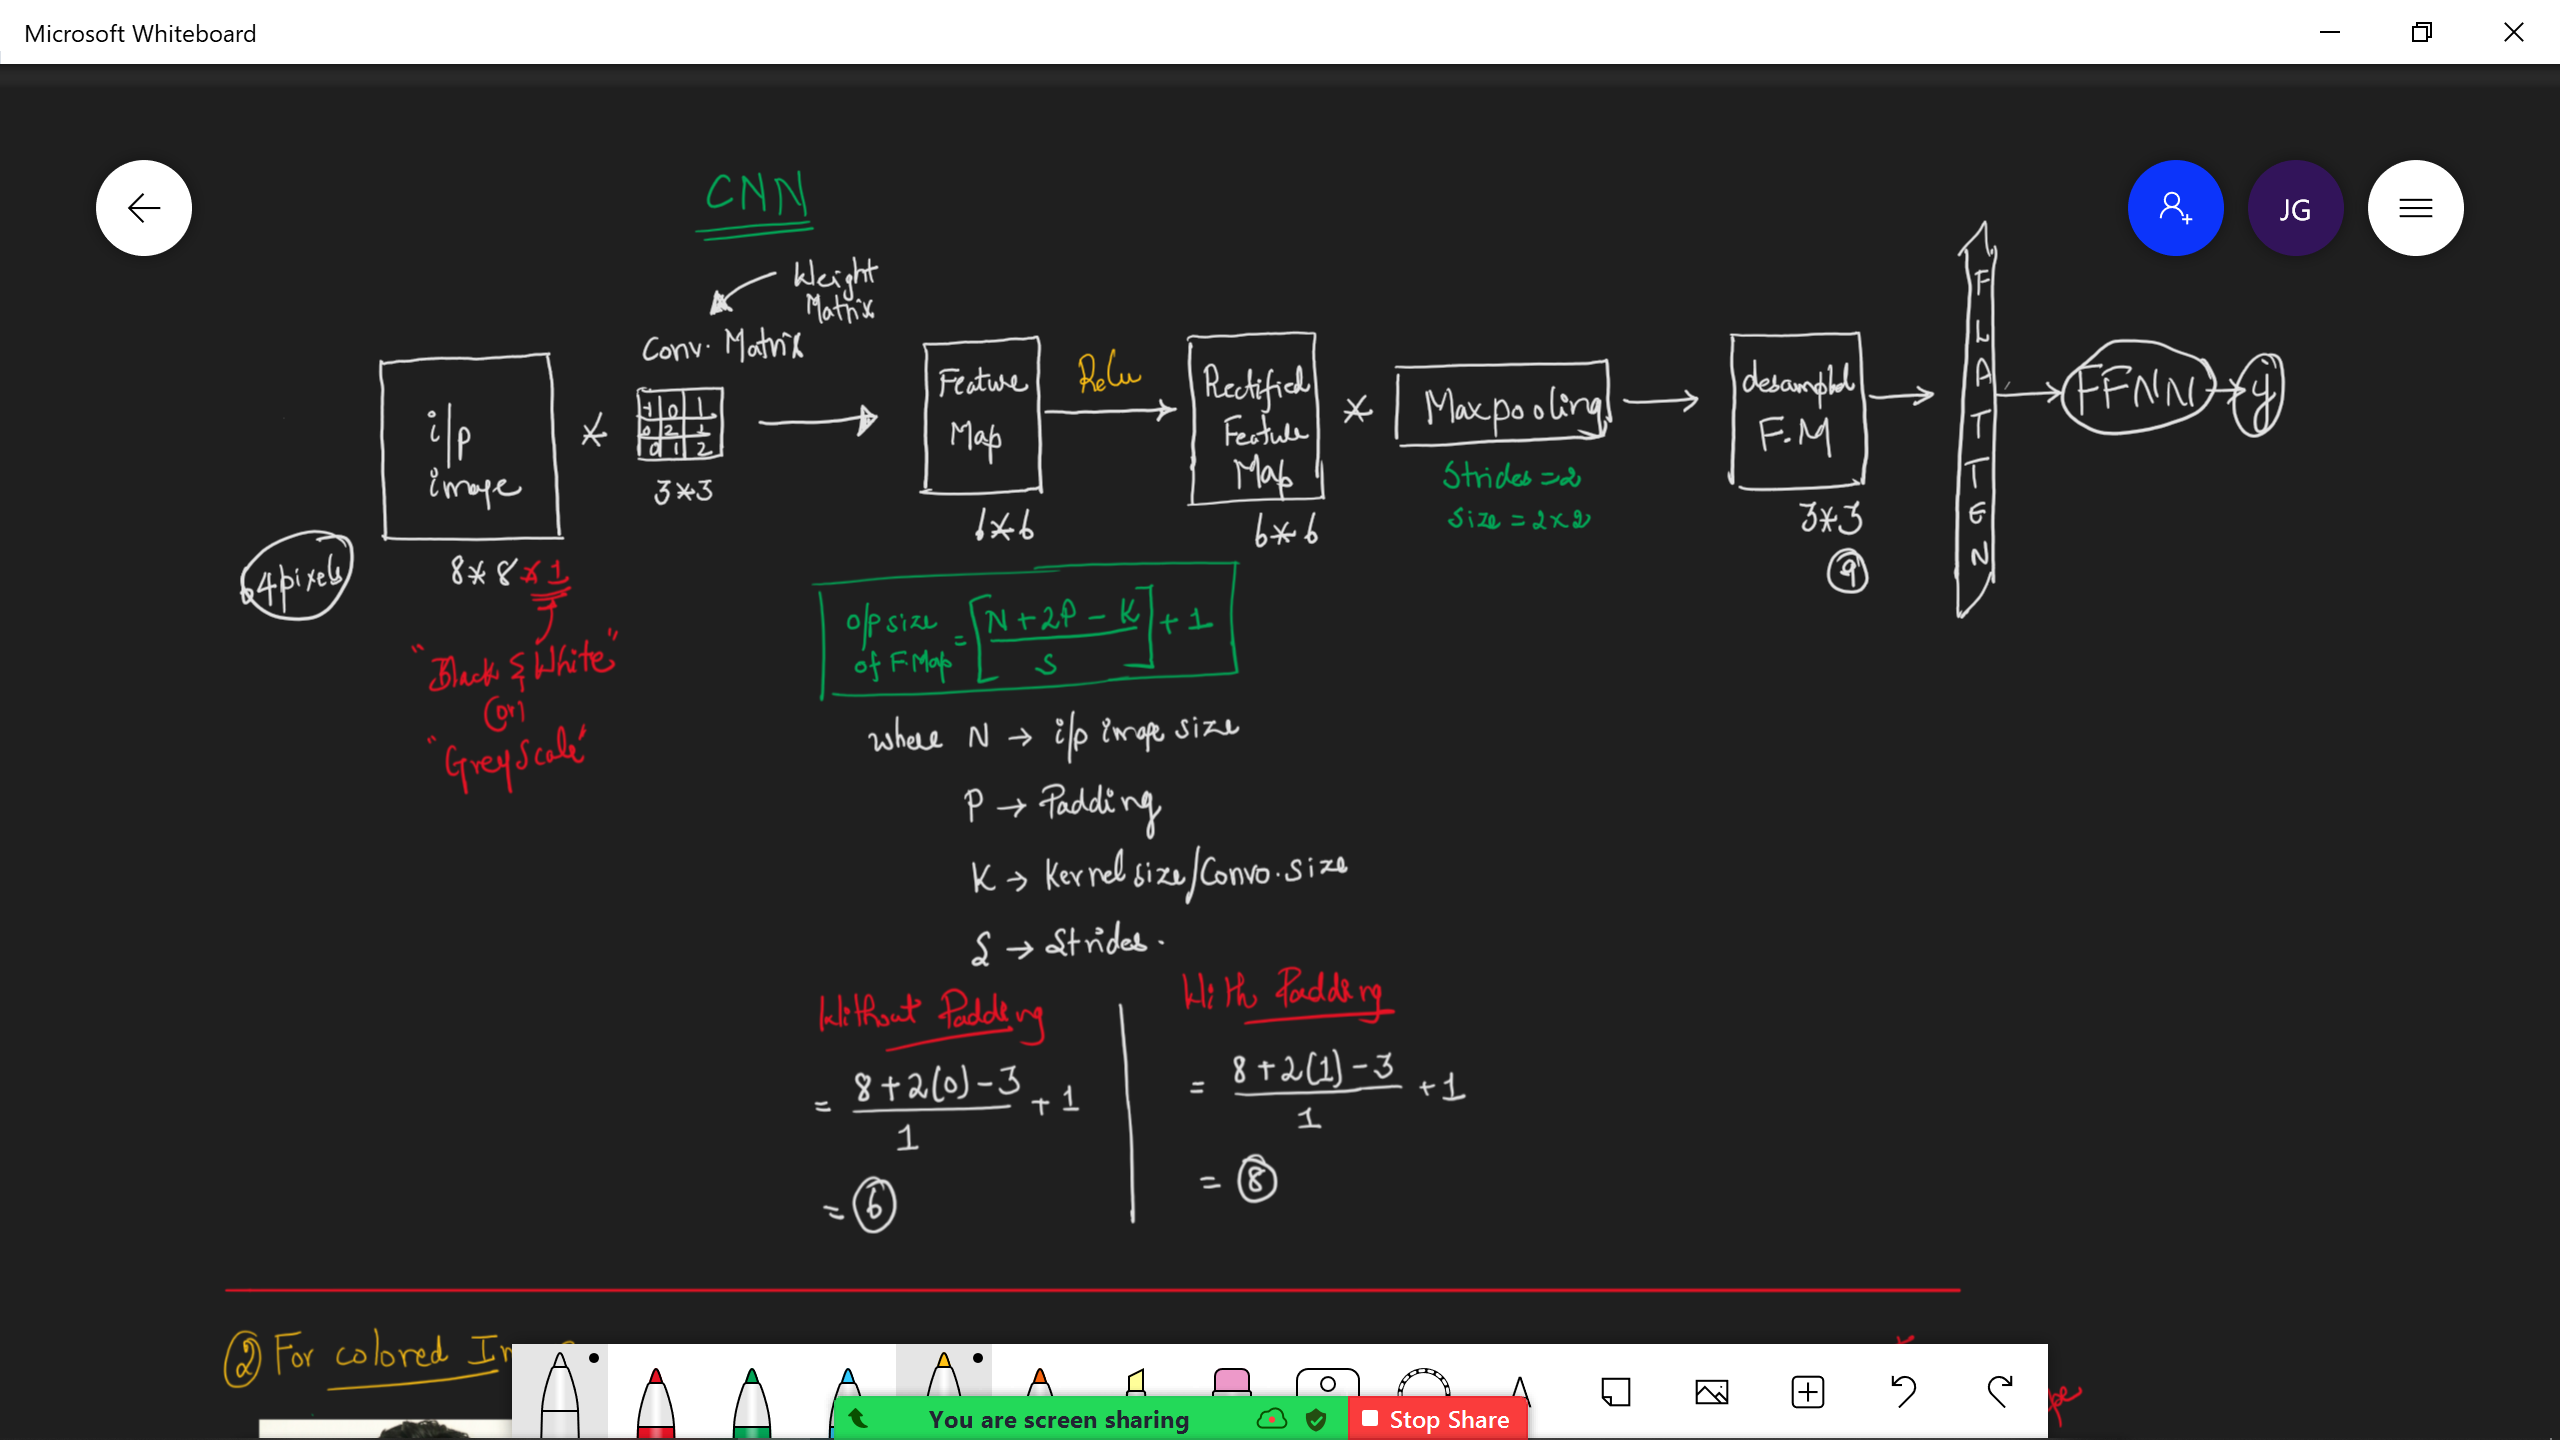 Microsoft Whiteboard
JG
CNN
Weight
Matrix
Conv. Matrix
i/p
image
*
0 1
0 2 1
0 1 2
3*3
Feature
Map
6*6
Relu
Rectified
Feature
Map
6*6
*
Maxpooling
Strides = 2
Size = 2x2
desampled
F.M
3*3
9
FLATTEN
FFNN
ŷ
64pixels
8*8*1
"Black & White"
(or)
"GreyScale"
o/p size of F.Map = [N+2P-K / S] + 1
where N → i/p image size
P → Padding
K → Kernel size/Convo. size
S → Strides.
Without Padding
= 8+2(0)-3 / 1 + 1
= 6
With Padding
= 8+2(1)-3 / 1 + 1
= 8
② For colored
You are screen sharing
Stop Share